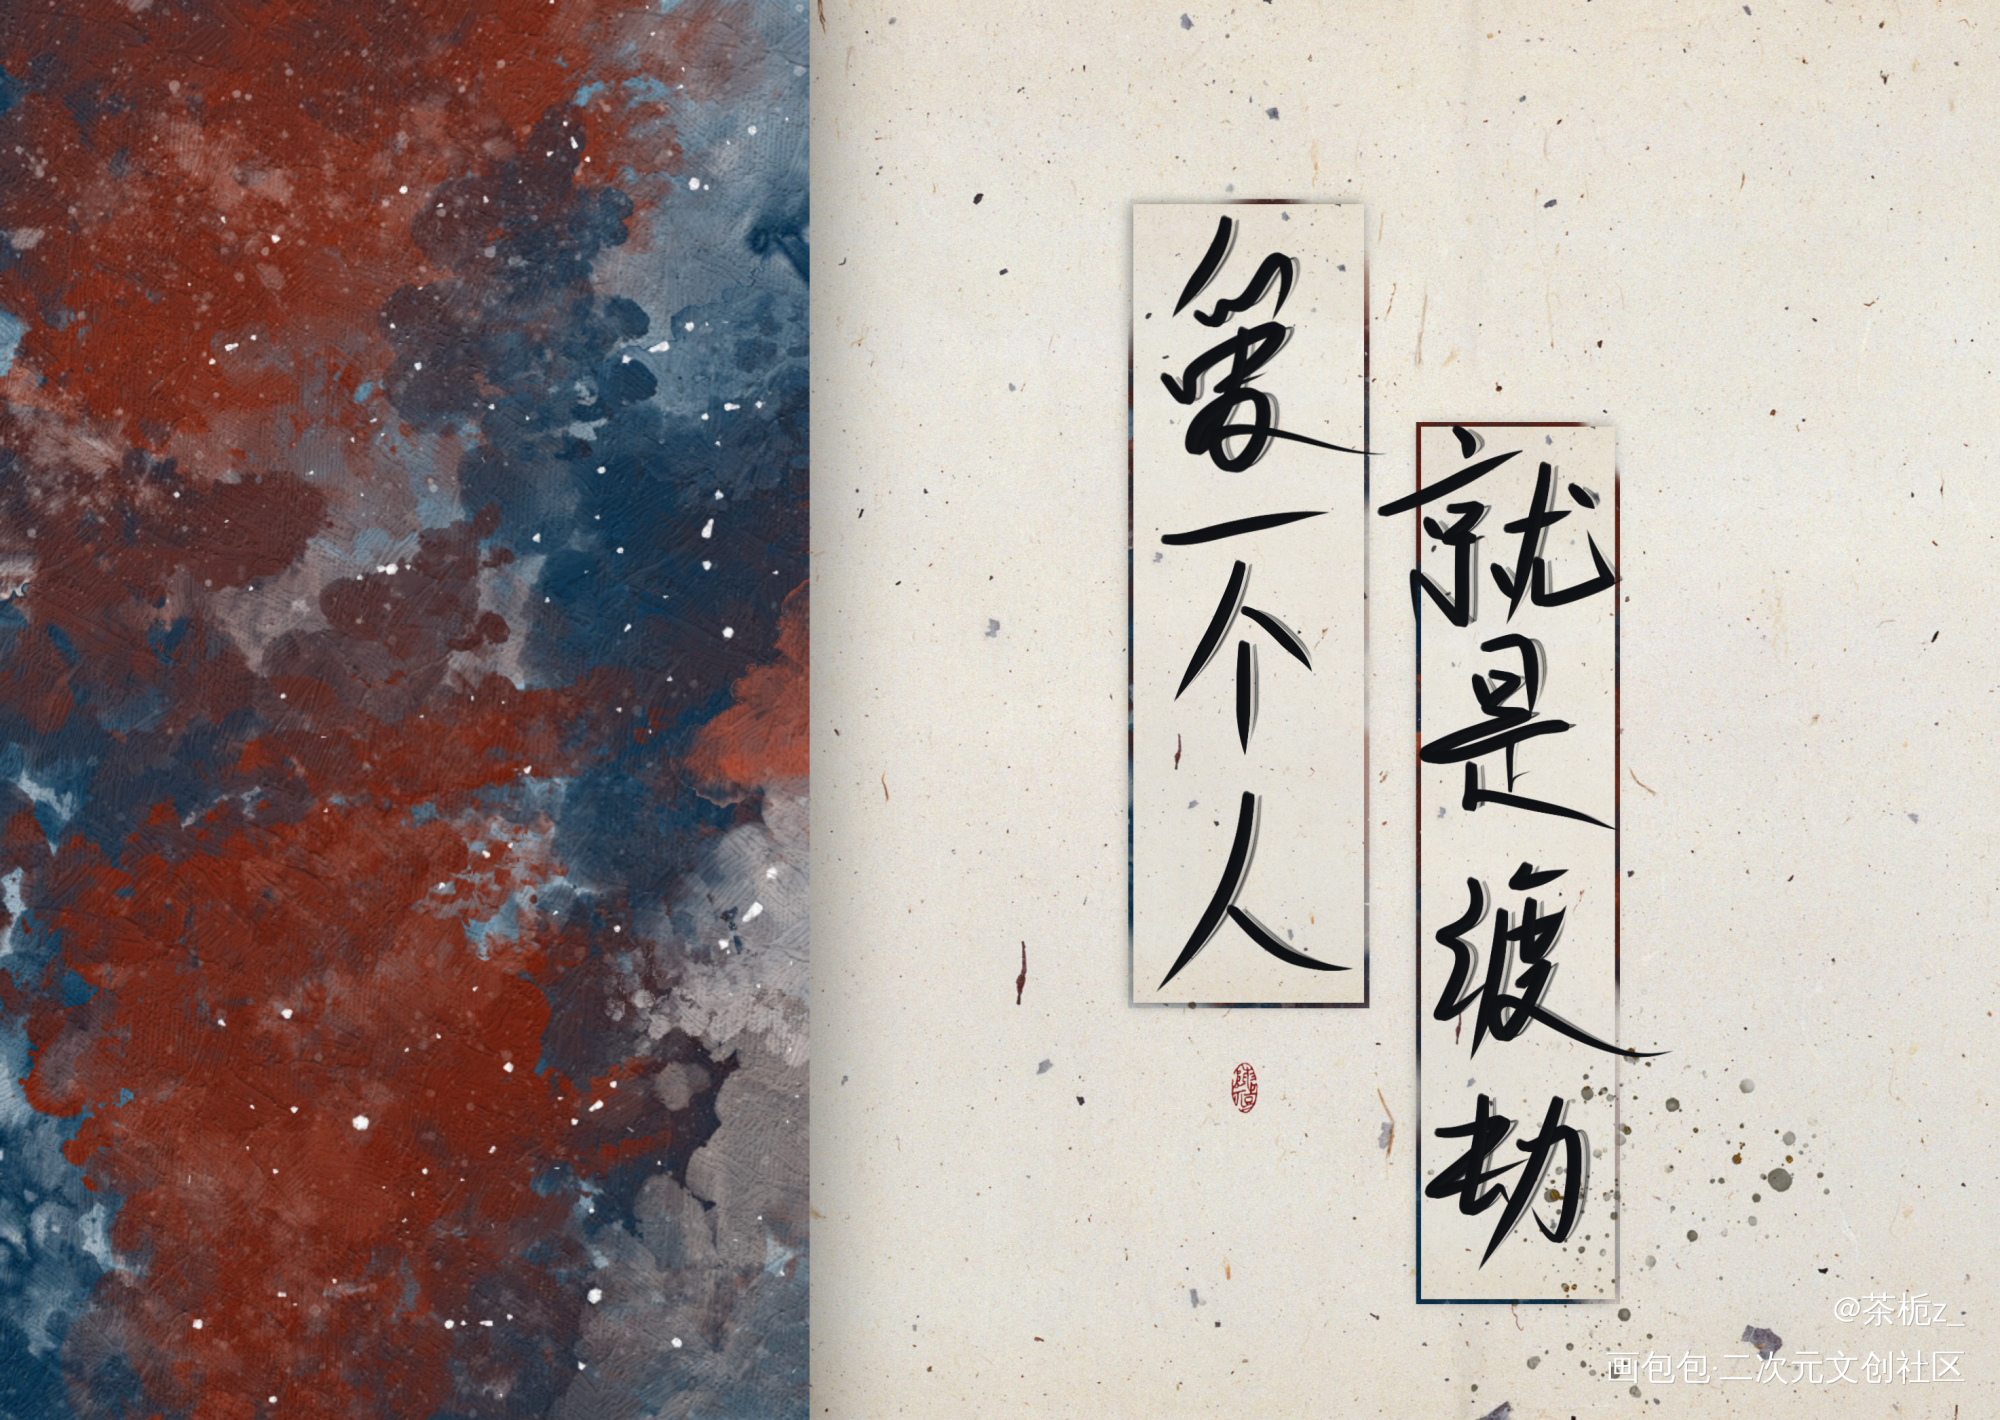 愛一个人
就是渡劫
@茶栀z_
画包包·二次元文创社区